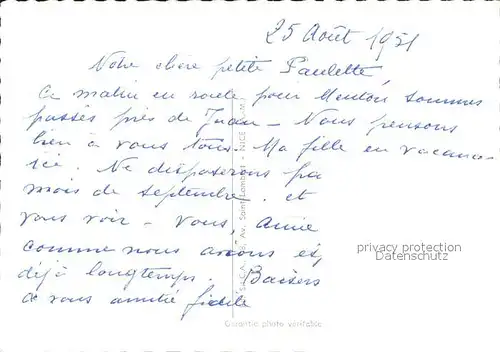 25 Août 1951
Notre chère petite Paulette,
Ce matin en route pour Menton sommes
passés près de Juan - Nous pensons
bien à vous tous. Ma fille en vacances
ici. Ne disposerons pas
mois de septembre. et
vous voir - Vous, Amie
comme nous avons
déjà longtemps. Baisers
de vous amitié fidèle
privacy protection
Datenschutz
Av. Saint-Lambert - NICE
Garantie photo véritable